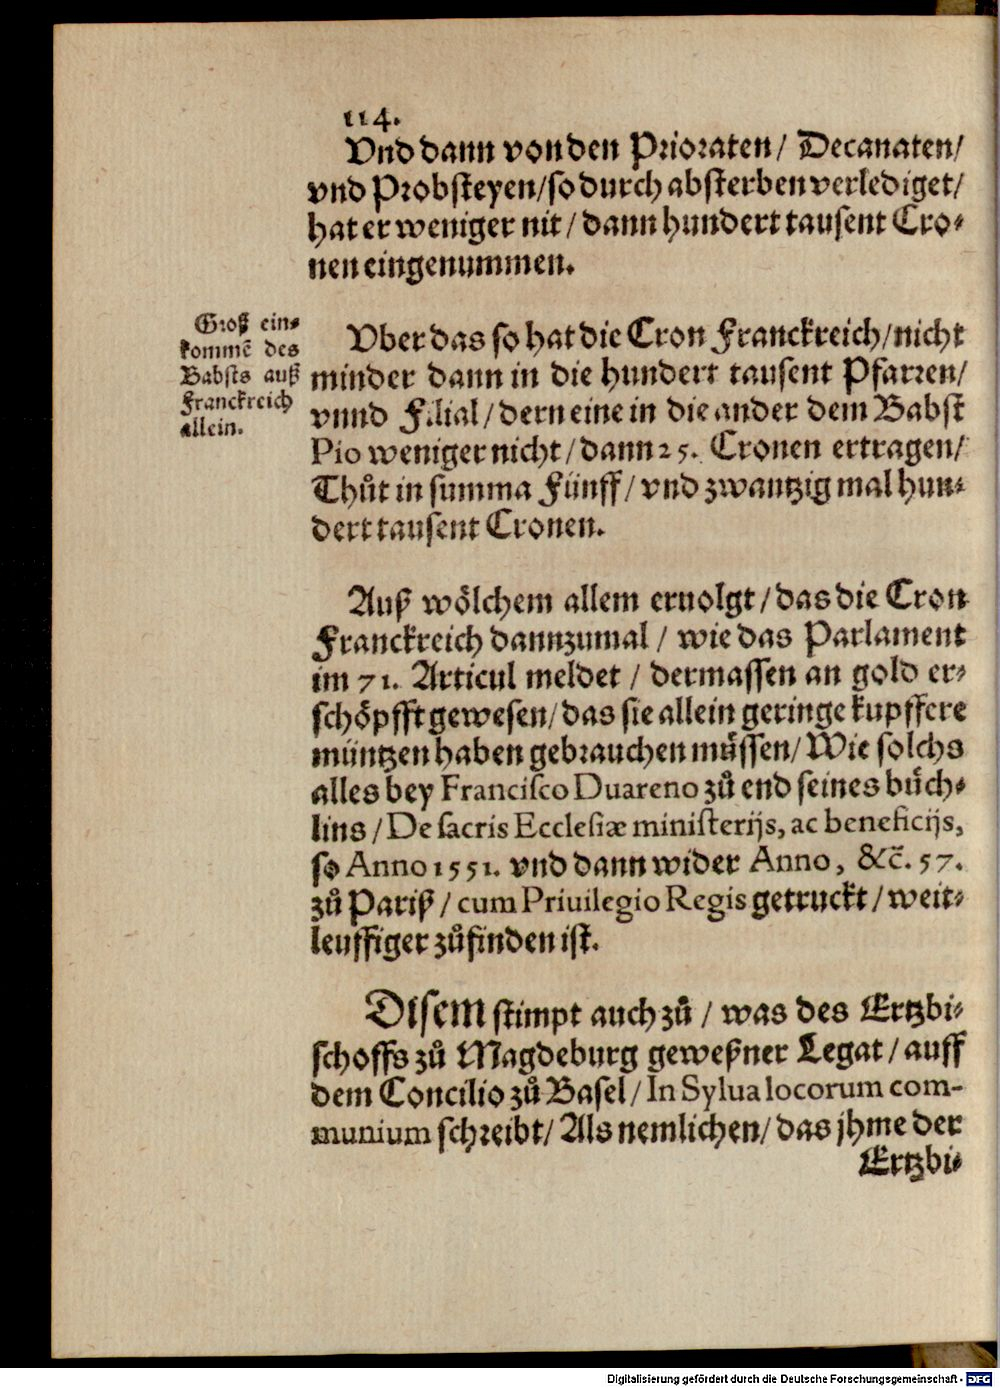 114.
Vnd dann von den Prioraten/ Decanaten/
vnd Probsteyen/so durch absterben verlediget/
hat er weniger nit/ dann hundert tausent Cro-
nen eingenummen.
Groß ein-
kommē des
Babsts auß
Franckreich
allein.
Vber das so hat die Cron Franckreich/nicht
minder dann in die hundert tausent Pfarren/
vnnd Filial/ dern eine in die ander dem Babst
Pio weniger nicht/ dann 25. Cronen ertragen/
Thůt in summa Fünff/ vnd zwantzig mal hun-
dert tausent Cronen.
Auß wölchem allem eruolgt/ das die Cron
Franckreich dannzumal/ wie das Parlament
im 71. Articul meldet/ dermassen an gold er-
schöpfft gewesen/ das sie allein geringe kupffere
müntzen haben gebrauchen müssen/ Wie solchs
alles bey Francisco Duareno zů end seines büch-
lins/ De sacris Ecclesiæ ministerijs, ac beneficijs,
so Anno 1551. vnd dann wider Anno, &c̄. 57.
zů Pariß/ cum Priuilegio Regis getruckt/ weit-
leuffiger zůfinden ist.
Disem stimpt auch zů/ was des Ertzbi-
schoffs zů Magdeburg geweßner Legat/ auff
dem Concilio zů Basel/ In Sylua locorum com-
munium schreibt/ Als nemlichen/ das jhme der
Ertzbi-
Digitalisierung gefördert durch die Deutsche Forschungsgemeinschaft - DFG